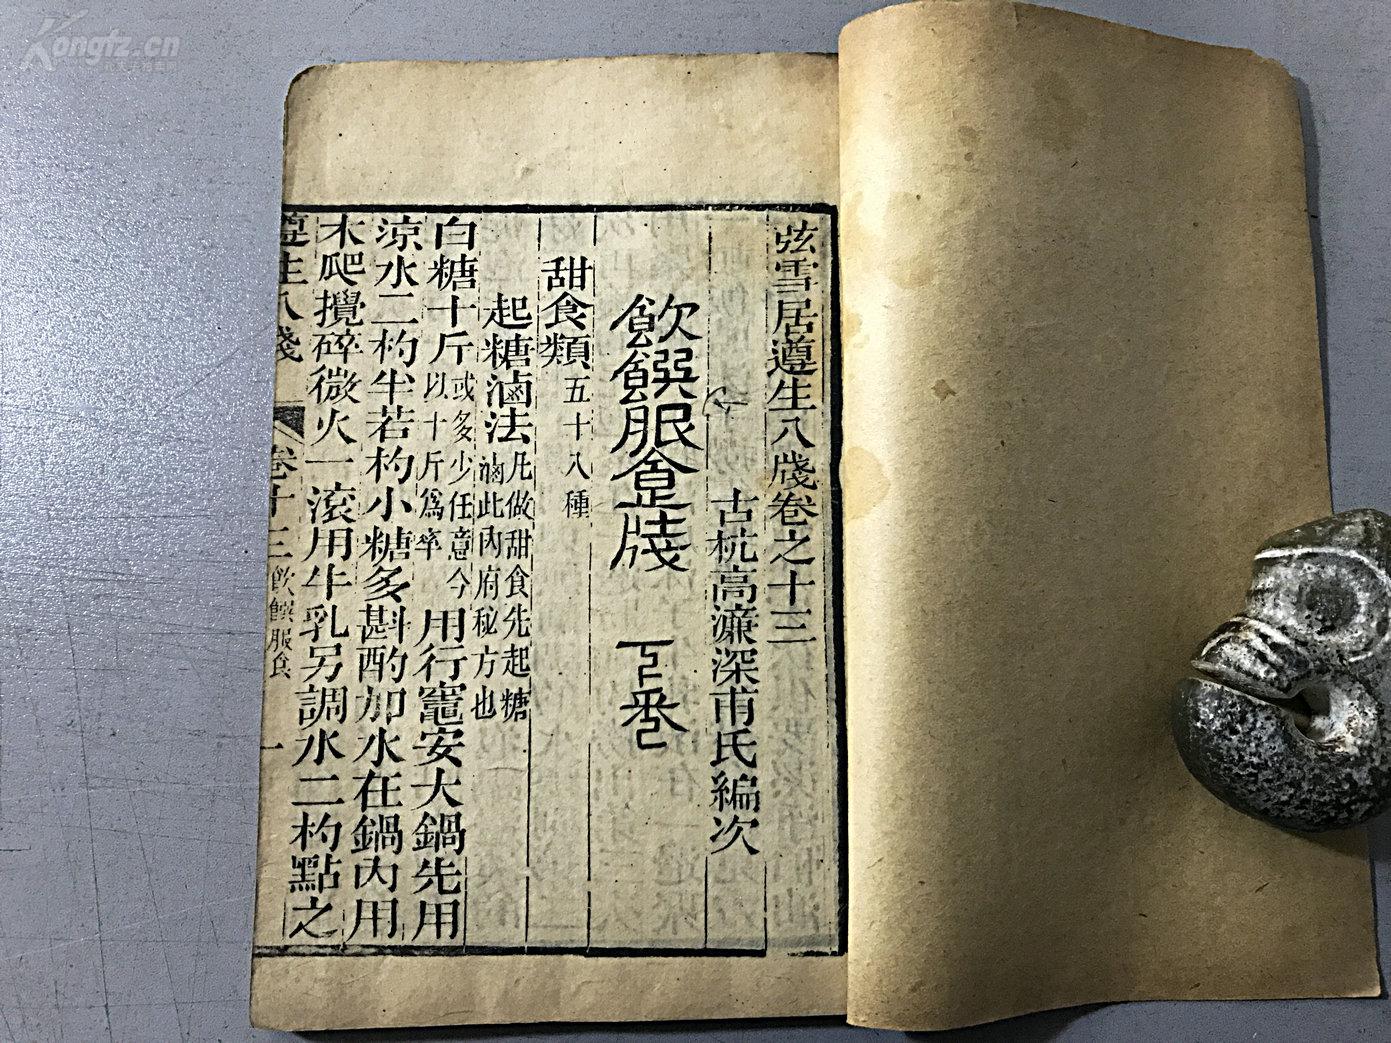 弦雪居遵生八牋卷之十三
古杭高濂深甫氏編次
飲饌服食牋 下卷
甜食類五十八種
起糖滷法凡做甜食先起糖
滷此內府秘方也
白糖十斤或多少任意今
以十斤爲率用行竈安大鍋先用
涼水二杓半若杓小糖多斟酌加水在鍋內用
木爬攪碎微火一滾用牛乳另調水二杓點之
遵生八牋 卷十三 飲饌服食 一
Kongfz.cn